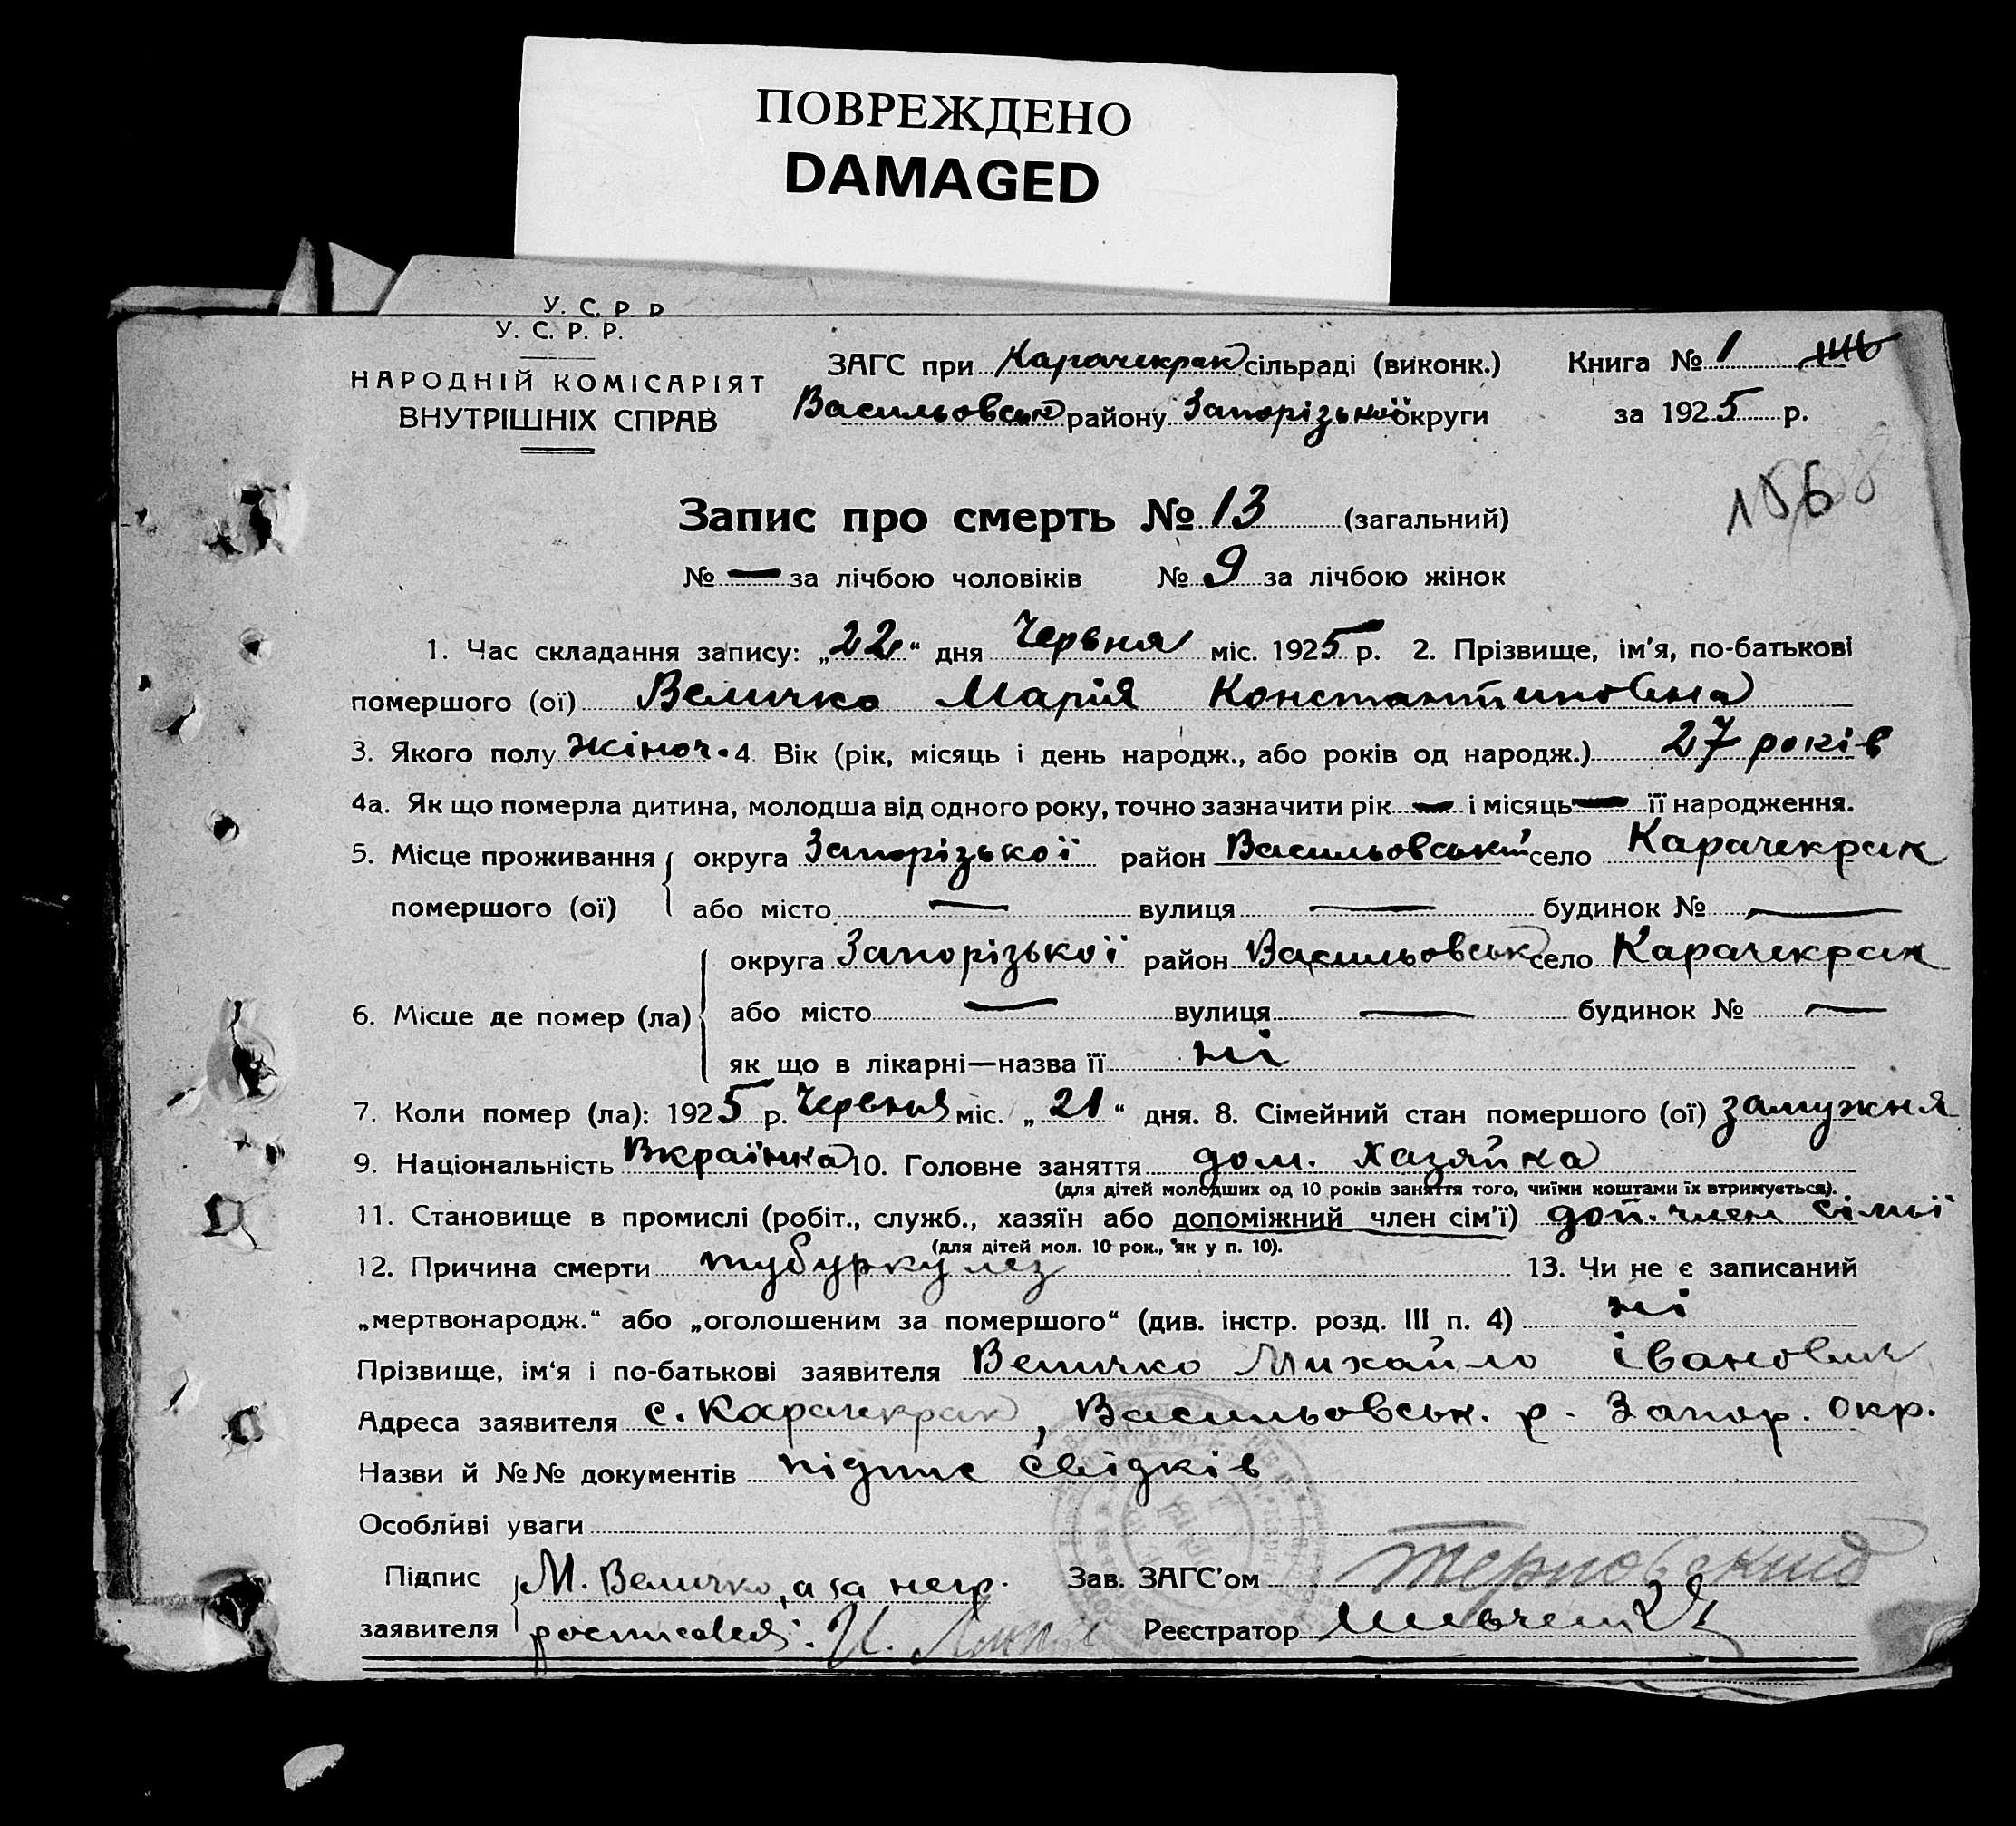 ПОВРЕЖДЕНО
DAMAGED
У. С. Р. Р.
У. С. Р. Р.
НАРОДНІЙ КОМІСАРІЯТ
ВНУТРІШНІХ СПРАВ
ЗАГС при Карачекрак сільраді (виконк.) Книга № 1
Васильовськ району Запорізької округи за 1925 р.
Запис про смерть № 13 (загальний)
№ — за лічбою чоловіків № 9 за лічбою жінок
1. Час складання запису: „22“ дня Червня міс. 1925 р. 2. Прізвище, ім'я, по-батькові
помершого (ої) Величко Марія Константиновна
3. Якого полу жіноч. 4 Вік (рік, місяць і день народж., або років од народж.) 27 років
4а. Як що померла дитина, молодша від одного року, точно зазначити рік — і місяць — її народження.
5. Місце проживання округа Запорізької район Васильовський село Карачекрак
помершого (ої) або місто — вулиця — будинок № —
округа Запорізької район Васильовськ село Карачекрак
6. Місце де помер (ла) або місто — вулиця — будинок № —
як що в лікарні—назва її ні
7. Коли помер (ла): 1925 р. Червня міс. „21“ дня. 8. Сімейний стан помершого (ої) замужня
9. Національність Вкраїнка 10. Головне заняття дом. хазяйка
(для дітей молодших од 10 років заняття того, чиїми коштами їх втримується).
11. Становище в промислі (робіт., служб., хазяїн або допоміжний член сім'ї) доп. член сімьї
(для дітей мол. 10 рок., як у п. 10).
12. Причина смерти тубуркулез 13. Чи не є записаний
„мертвонародж.“ або „оголошеним за помершого“ (див. інстр. розд. III п. 4) ні
Прізвище, ім'я і по-батькові заявителя Величко Михайло Іванович
Адреса заявителя с. Карачекрак, Васильовськ. р. Запор. окр.
Назви й №№ документів підпис свідків
Особливі уваги
Підпис М. Величко, а за негр. Зав. ЗАГС'ом Терновский
заявителя росписався: И. Реєстратор